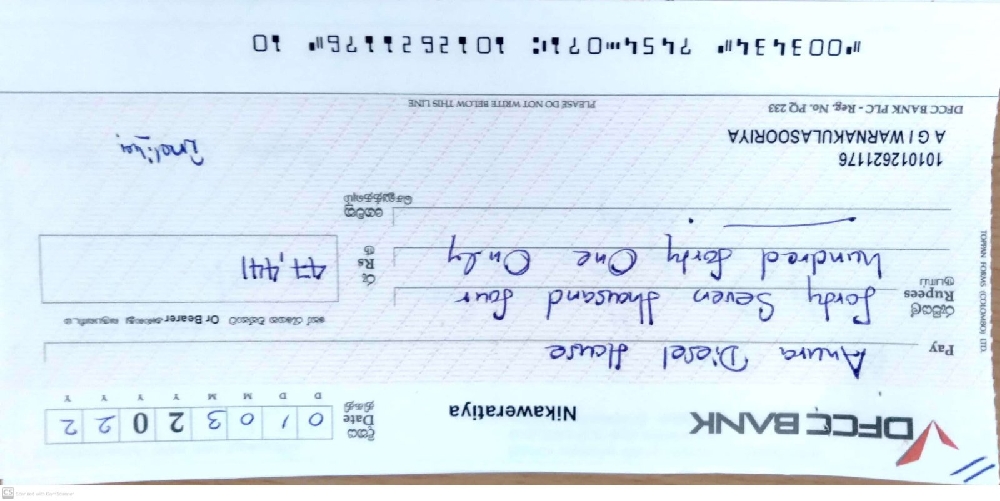 DFCC BANK
Nikaweratiya
දිනය
Date
திகதி
0 1 0 3 2 0 2 2
D D M M Y Y Y Y
Pay Anura Diesel House
Or Bearer
රුපියල්
Rupees
ரூபாய்
forty Seven thousand four
hundred forty One Only
රු
Rs
ரூ
47,441
101012621176
A G I WARNAKULASOORIYA
DFCC BANK PLC - Reg. No. PQ 233
PLEASE DO NOT WRITE BELOW THIS LINE
TOPPAN FORMS (COLOMBO) LTD.
⑈003434⑈ 7454⑉071⑆ 1012621176⑈ 10